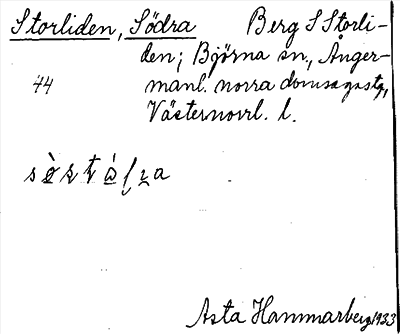 Storliden, Södra Berg S Storli-
den; Björna sn, Ånger-
44 manl. norra domsagas tg,
Västernorrl. l.
Asta Hammarberg 1933